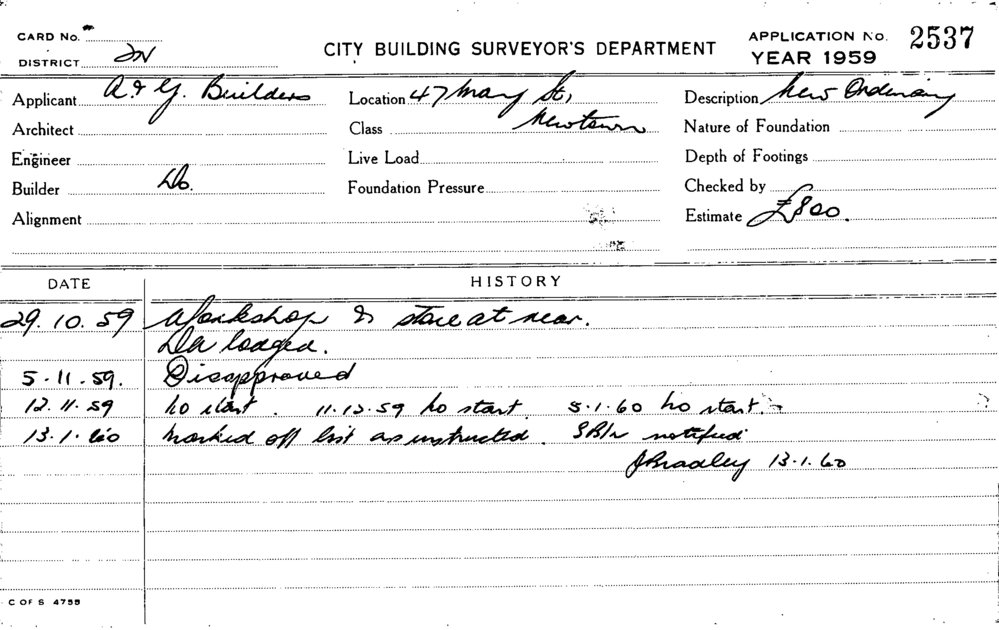 CARD No.
CITY BUILDING SURVEYOR'S DEPARTMENT
APPLICATION No. 2537
DISTRICT
YEAR 1959
Applicant A. & G. Builders
Location 47 Mary St,
Description New Ordinary
Architect
Class Newtown
Nature of Foundation
Engineer
Live Load
Depth of Footings
Builder Do.
Foundation Pressure
Checked by
Alignment
Estimate £800.
DATE HISTORY
29.10.59 Workshop & store at rear.
DA lodged.
5.11.59. Disapproved
12.11.59 No start. 11.12.59 No start. 5.1.60 No start.
13.1.60 Marked off list as instructed. notified
JBradley 13.1.60
C OF S 4755